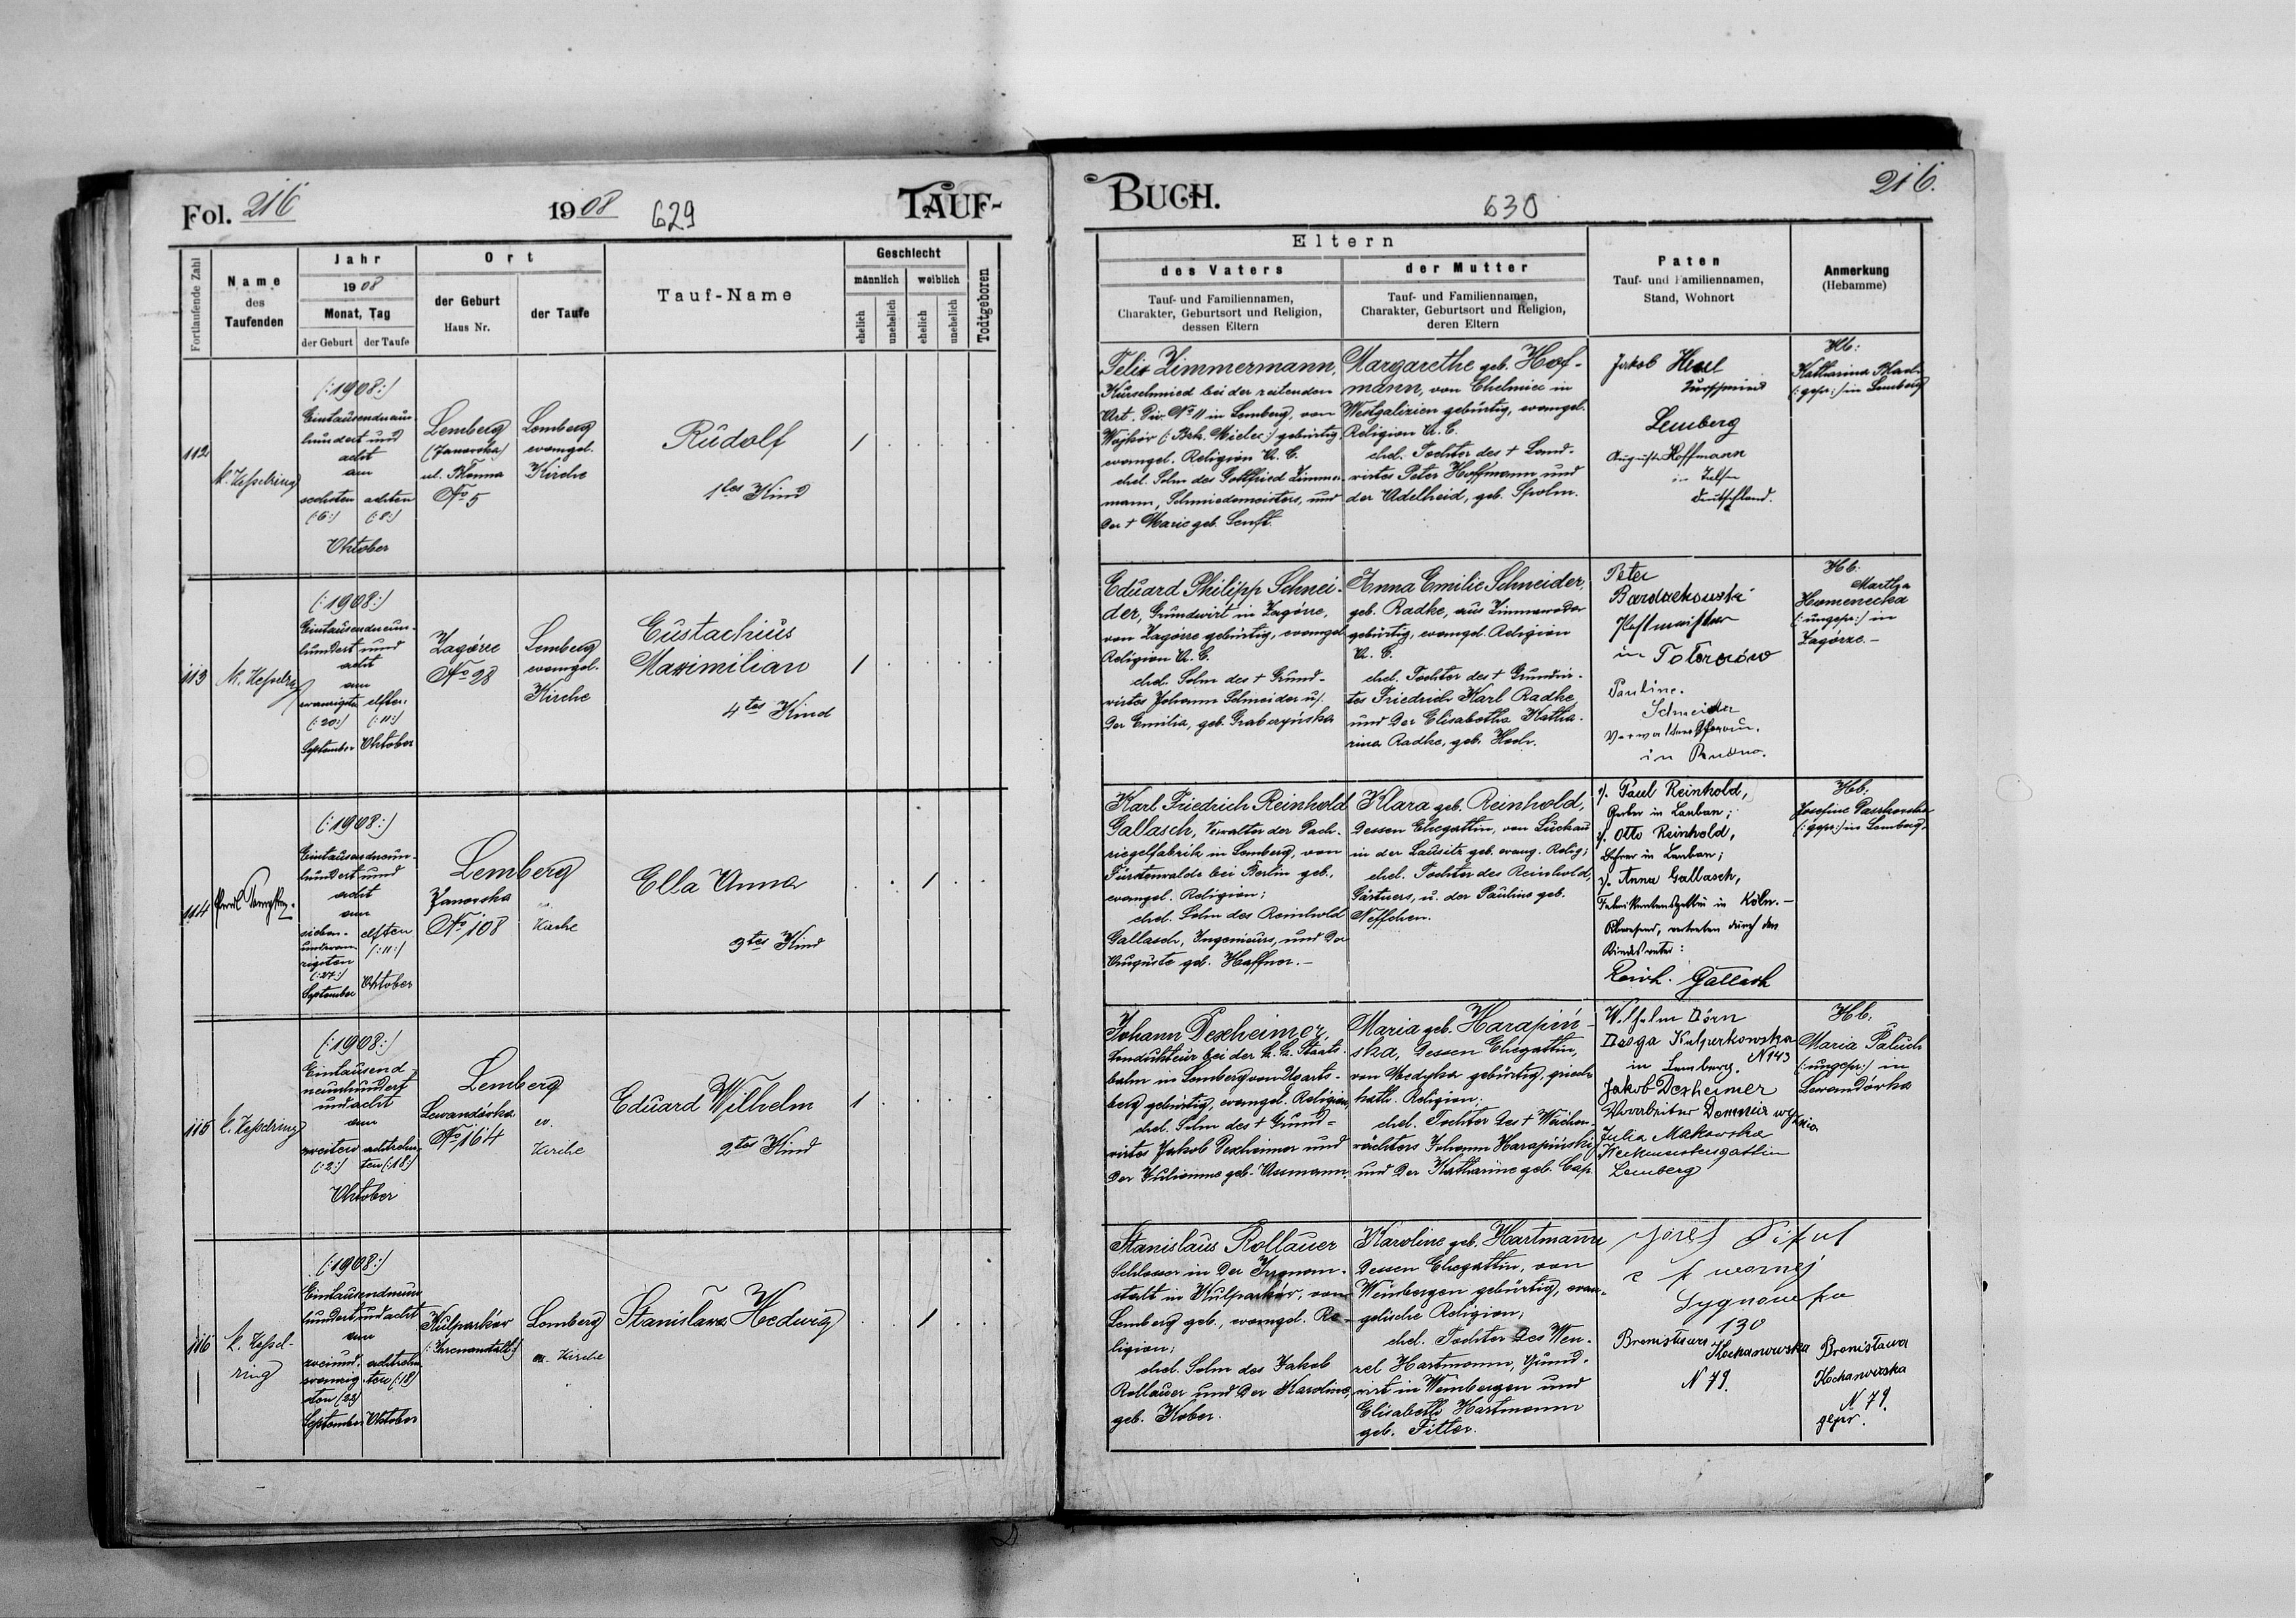 Fol. 216
1908
629
TAUF-
Fortlaufende Zahl
Name
des
Taufenden
Jahr
1908
Monat, Tag
der Geburt
der Taufe
Ort
der Geburt
Haus Nr.
der Taufe
Tauf-Name
Geschlecht
männlich
weiblich
ehelich
unehelich
ehelich
unehelich
Todtgeboren
112
M. Kesselring
(:1908:)
Eintausendneun-
hundert und
acht
am
sechsten achten
(:6:) (:8:)
Oktober
Lemberg
(Janowska)
ul.
No 5
Lemberg
evangel.
Kirche
Rudolf
1tes Kind
1
113
M. Kesselring
(:1908:)
Eintausendneun-
hundert und
acht
am
zwanzigsten elften
(:20:) (:11:)
September Oktober
Zagórze
No 28
Lemberg
evangel.
Kirche
Eustachius
Maximilian
4tes Kind
1
114
(:1908:)
Eintausendneun-
hundert und
acht
am
sieben- elften
undzwan- (:11:)
zigsten
(:27:)
September Oktober
Lemberg
Janowska
No 108
Kirche
Ella Anna
3tes Kind
1
115
Kesselring
(:1908:)
Eintausend
neunhundert
und acht
am
zweiten achtzehn-
(:2:) ten (:18:)
Oktober
Lemberg
Lewandówka
No 164
ev.
Kirche
Eduard Wilhelm
2tes Kind
1
116
Kessel-
ring
(:1908:)
Eintausendneun
hundert und acht
am
zweiund- achtzehn-
zwanzig- ten (:18)
sten (22)
September Oktober
Kulparków
(:Irrenanstalt:)
Lemberg
ev. Kirche
Stanislawa Hedwig
1
BUCH.
630
216.
Eltern
des Vaters
Tauf- und Familiennamen,
Charakter, Geburtsort und Religion,
dessen Eltern
der Mutter
Tauf- und Familiennamen,
Charakter, Geburtsort und Religion,
deren Eltern
Paten
Tauf- und Familiennamen,
Stand, Wohnort
Anmerkung
(Hebamme)
Felix Zimmermann,
Kurschmied bei der reitenden
Art. Div. No 11 in Lemberg, von
Wojków (:Bzk. Mielec:) gebürtig,
evangel. Religion A. C.
ehel. Sohn des Gottfried Zimmer-
mann, Schmiedemeisters, und
der † Marie geb. Senft.
Margarethe geb. Hof-
mann, von Chelmiec in
Westgalizien gebürtig, evangel.
Religion A. C.
ehel. Tochter des † Land-
wirtes Peter Hoffmann und
der Adelheid, geb. Spohn.
Jakob
Kurschmied
Lemberg
Auguste Hoffmann
in
Deutschland.
Hb:
Katharina
(:gepr:) in Lemberg
Eduard Philipp Schnei-
der, Grundwirt in Zagórze,
von Zagórze gebürtig, evangel.
Religion A. C.
ehel. Sohn des † Grund-
wirtes Johann Schneider u.
der Emilia, geb. Grabczyńska
Anna Emilie Schneider,
geb. Radke, aus
gebürtig, evangel. Religion
A. C.
ehel. Tochter des † Grundwir-
tes Friedrich Karl Radke
und der Elisabetha Katha-
rina Radke, geb. Hoch.
Peter
Bardachowski
Postmeister
in
Pauline
Schneider
in Rudno.
Hb:
Martha
Homenecka
(:ungepr:) in
Zagórze.-
Karl Friedrich Reinhold
Gallasch, Verwalter der Dach-
ziegelfabrik in Lemberg, von
Fürstenwalde bei Berlin geb.,
evangel. Religion;
ehel. Sohn des Reinhold
Gallasch, Ingenieurs, und der
Auguste geb. Haffner.-
Klara geb. Reinhold,
dessen Ehegattin, von Luckau
in der Lausitz geb. evang. Relig;
ehel. Tochter des Reinhold,
Gärtners, u. der Pauline geb.
Neffchen.
1). Paul Reinhold,
Gerber in Lauban;
2). Otto Reinhold,
Lehrer in Lauban;
3). Anna Gallasch,
Fabrikantensgattin in Köln.-
Abwesend, vertreten durch den
Kindsvater:
Reinh. Gallasch
Hb:
Josefine
(:gepr:) in Lemberg.
Johann Dexheimer,
Kondukteur bei der k. k. Staats-
bahn in Lemberg von Ugarts-
berg gebürtig, evangel. Religion,
ehel. Sohn des † Grund-
wirtes Jakob Dexheimer und
der Julianne geb. Ussmann.
Maria geb. Harapiń-
ska, dessen Ehegattin,
von Medyka gebürtig, griech
kath. Religion;
ehel. Tochter des † Weichen-
wächters Johann Harapiński
und der Katharine geb. Cap.
Wilhelm Dörn
Olga Kasperkowska
in Lemberg. N 143
Jakob Dexheimer
Vorarbeiter
Julia Makowska
Werkmeistersgattin
Lemberg
Hb:
Maria Paluch
(:ungepr:) in
Lewandówka
Stanislaus Rollauer
Schlosser in der Irrenan-
stalt in Kulparków, von
Lemberg geb., evangel. Re-
ligion;
ehel. Sohn des Jakob
Rollauer und der Karoline,
geb. Kober.
Karoline geb. Hartmann
dessen Ehegattin, von
Weinbergen gebürtig, evan-
gelische Religion;
ehel. Tochter des Wen-
zel Hartmann, Grund-
wirt in Weinbergen und
Elisabeth Hartmann
geb. Fitler.
Józef
Sygniówka
130
Bronisława
Kochanowska
N 79.
Bronisława
Kochanowska
N 79.
gepr.